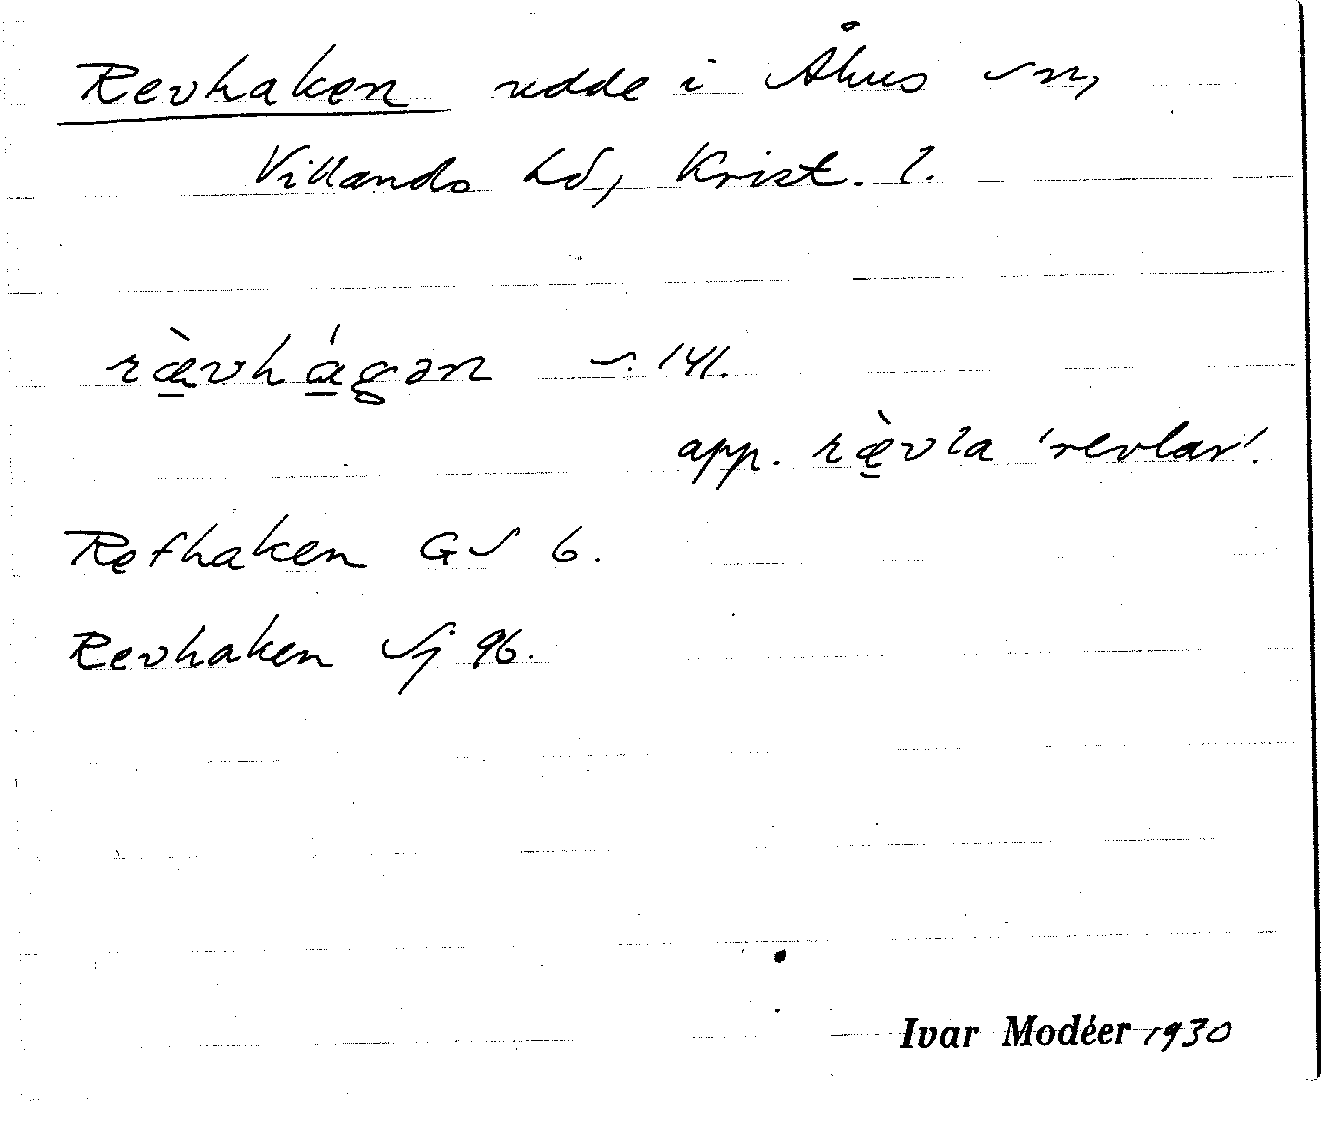 Revhaken udde i Åhus sn,
Villands hd, Krist. l.
ræ̀vhágən s. 141.
app. ræ̀vla 'revlar'.
Refhaken GS 6.
Revhaken Sj 96.
Ivar Modéer 1930